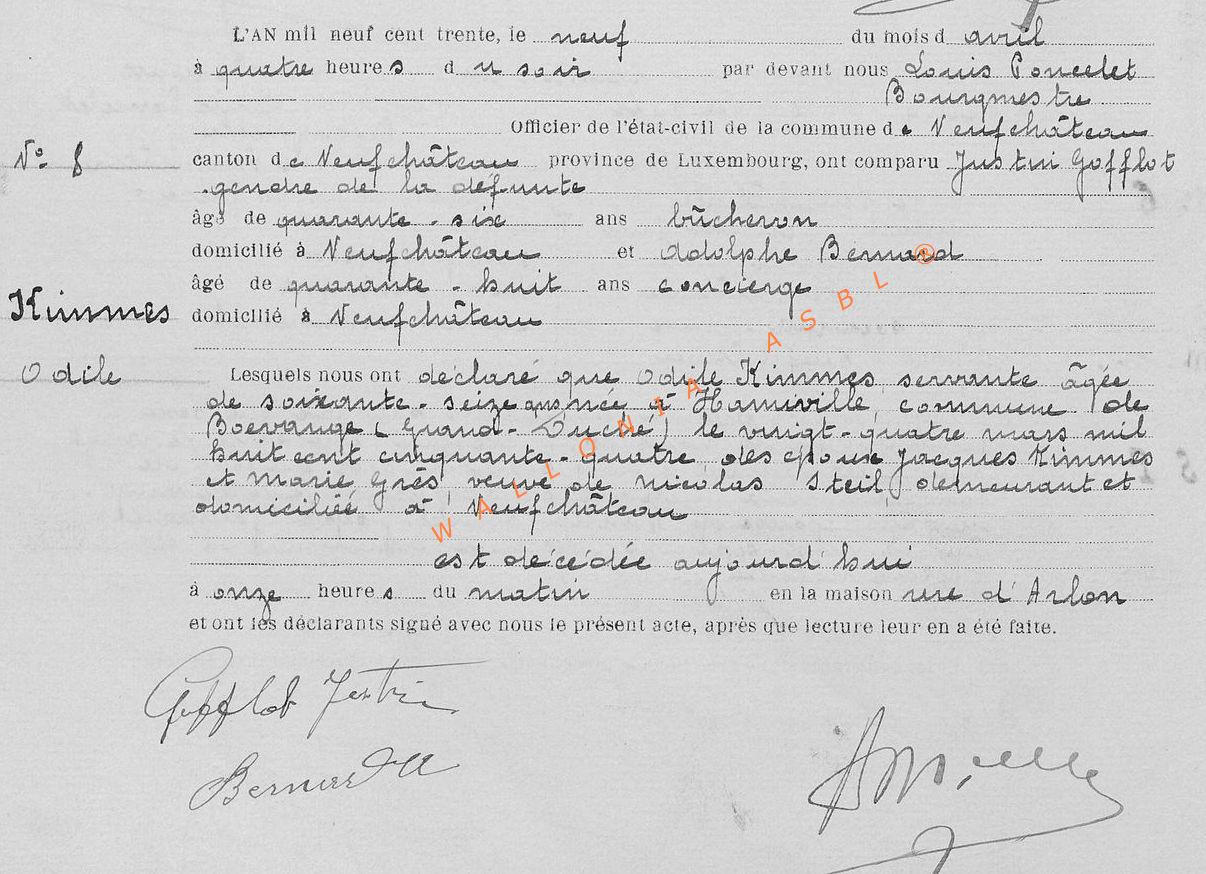 L'AN mil neuf cent trente, le neuf du mois d avril
à quatre heures du soir par devant nous Louis Poncelet
Bourgmestre
Officier de l'état-civil de la commune de Neufchâteau
N° 8
canton de Neufchâteau province de Luxembourg, ont comparu Justin Gofflot
gendre de la défunte
âgé de quarante-six ans bûcheron
domicilié à Neufchâteau et Adolphe Bernard
âgé de quarante-huit ans concierge
Kimmes domicilié à Neufchâteau
Odile Lesquels nous ont déclaré que Odile Kimmes servante âgée
de soixante-seize ans née à Hamiville, commune de
Boevange (Grand-Duché) le vingt-quatre mars mil
huit cent cinquante-quatre, des époux Jacques Kimmes
et Marie Grès veuve de Nicolas Steil demeurant et
domiciliée à Neufchâteau
est décédée aujourd'hui
à onze heures du matin en la maison rue d'Arlon
et ont les déclarants signé avec nous le présent acte, après que lecture leur en a été faite.
Gofflot Justin
Bernard A
WALLONIA ASBL ®